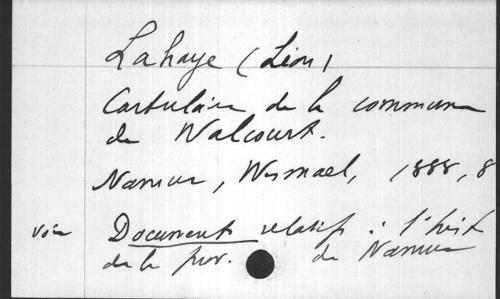 Lahaye (Léon)
Cartulaire de la commune
de Walcourt.
Namur, Wesmael, 1888, 8
voir Documents relatifs à l'hist
de la prov. de Namur